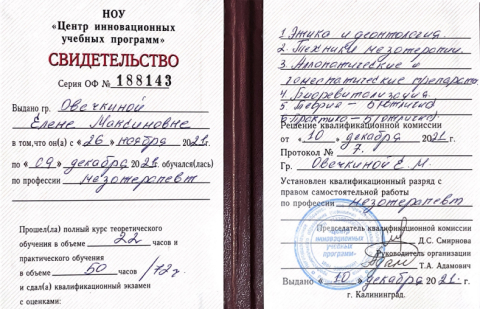 НОУ
«Центр инновационных
учебных программ»
СВИДЕТЕЛЬСТВО
Серия ОФ № 188143
Выдано гр. Овечкиной
Елене Максимовне
в том,что он(а) с «26» ноября 2021г.
по «09» декабря 2021. обучался(лась)
по профессии мезотерапевт
Прошел(ла) полный курс теоретического
обучения в объеме 22 часов и
практического обучения
в объеме 50 часов /72ч.
и сдал(а) квалификационный экзамен
с оценками:
1. Этика и деонтология.
2. Техника мезотерапии.
3. Аллопатические и
гомеопатические препараты
4. Биоревитализация.
5 Теория – 5 (отлично)
6. Практика – 5 (отлично)
Решение квалификационной комиссии
от «10» декабря 2021г.
Протокол № 7.
Гр. Овечкиной Е. М.
Установлен квалификационный разряд с
правом самостоятельной работы
по профессии мезотерапевт
Председатель квалификационной комиссии
Д.С. Смирнова
Руководитель организации
Т.А. Адамович
Выдано «10» декабря 2021г.
г. Калининград.
Центр
инновационных
учебных
программ